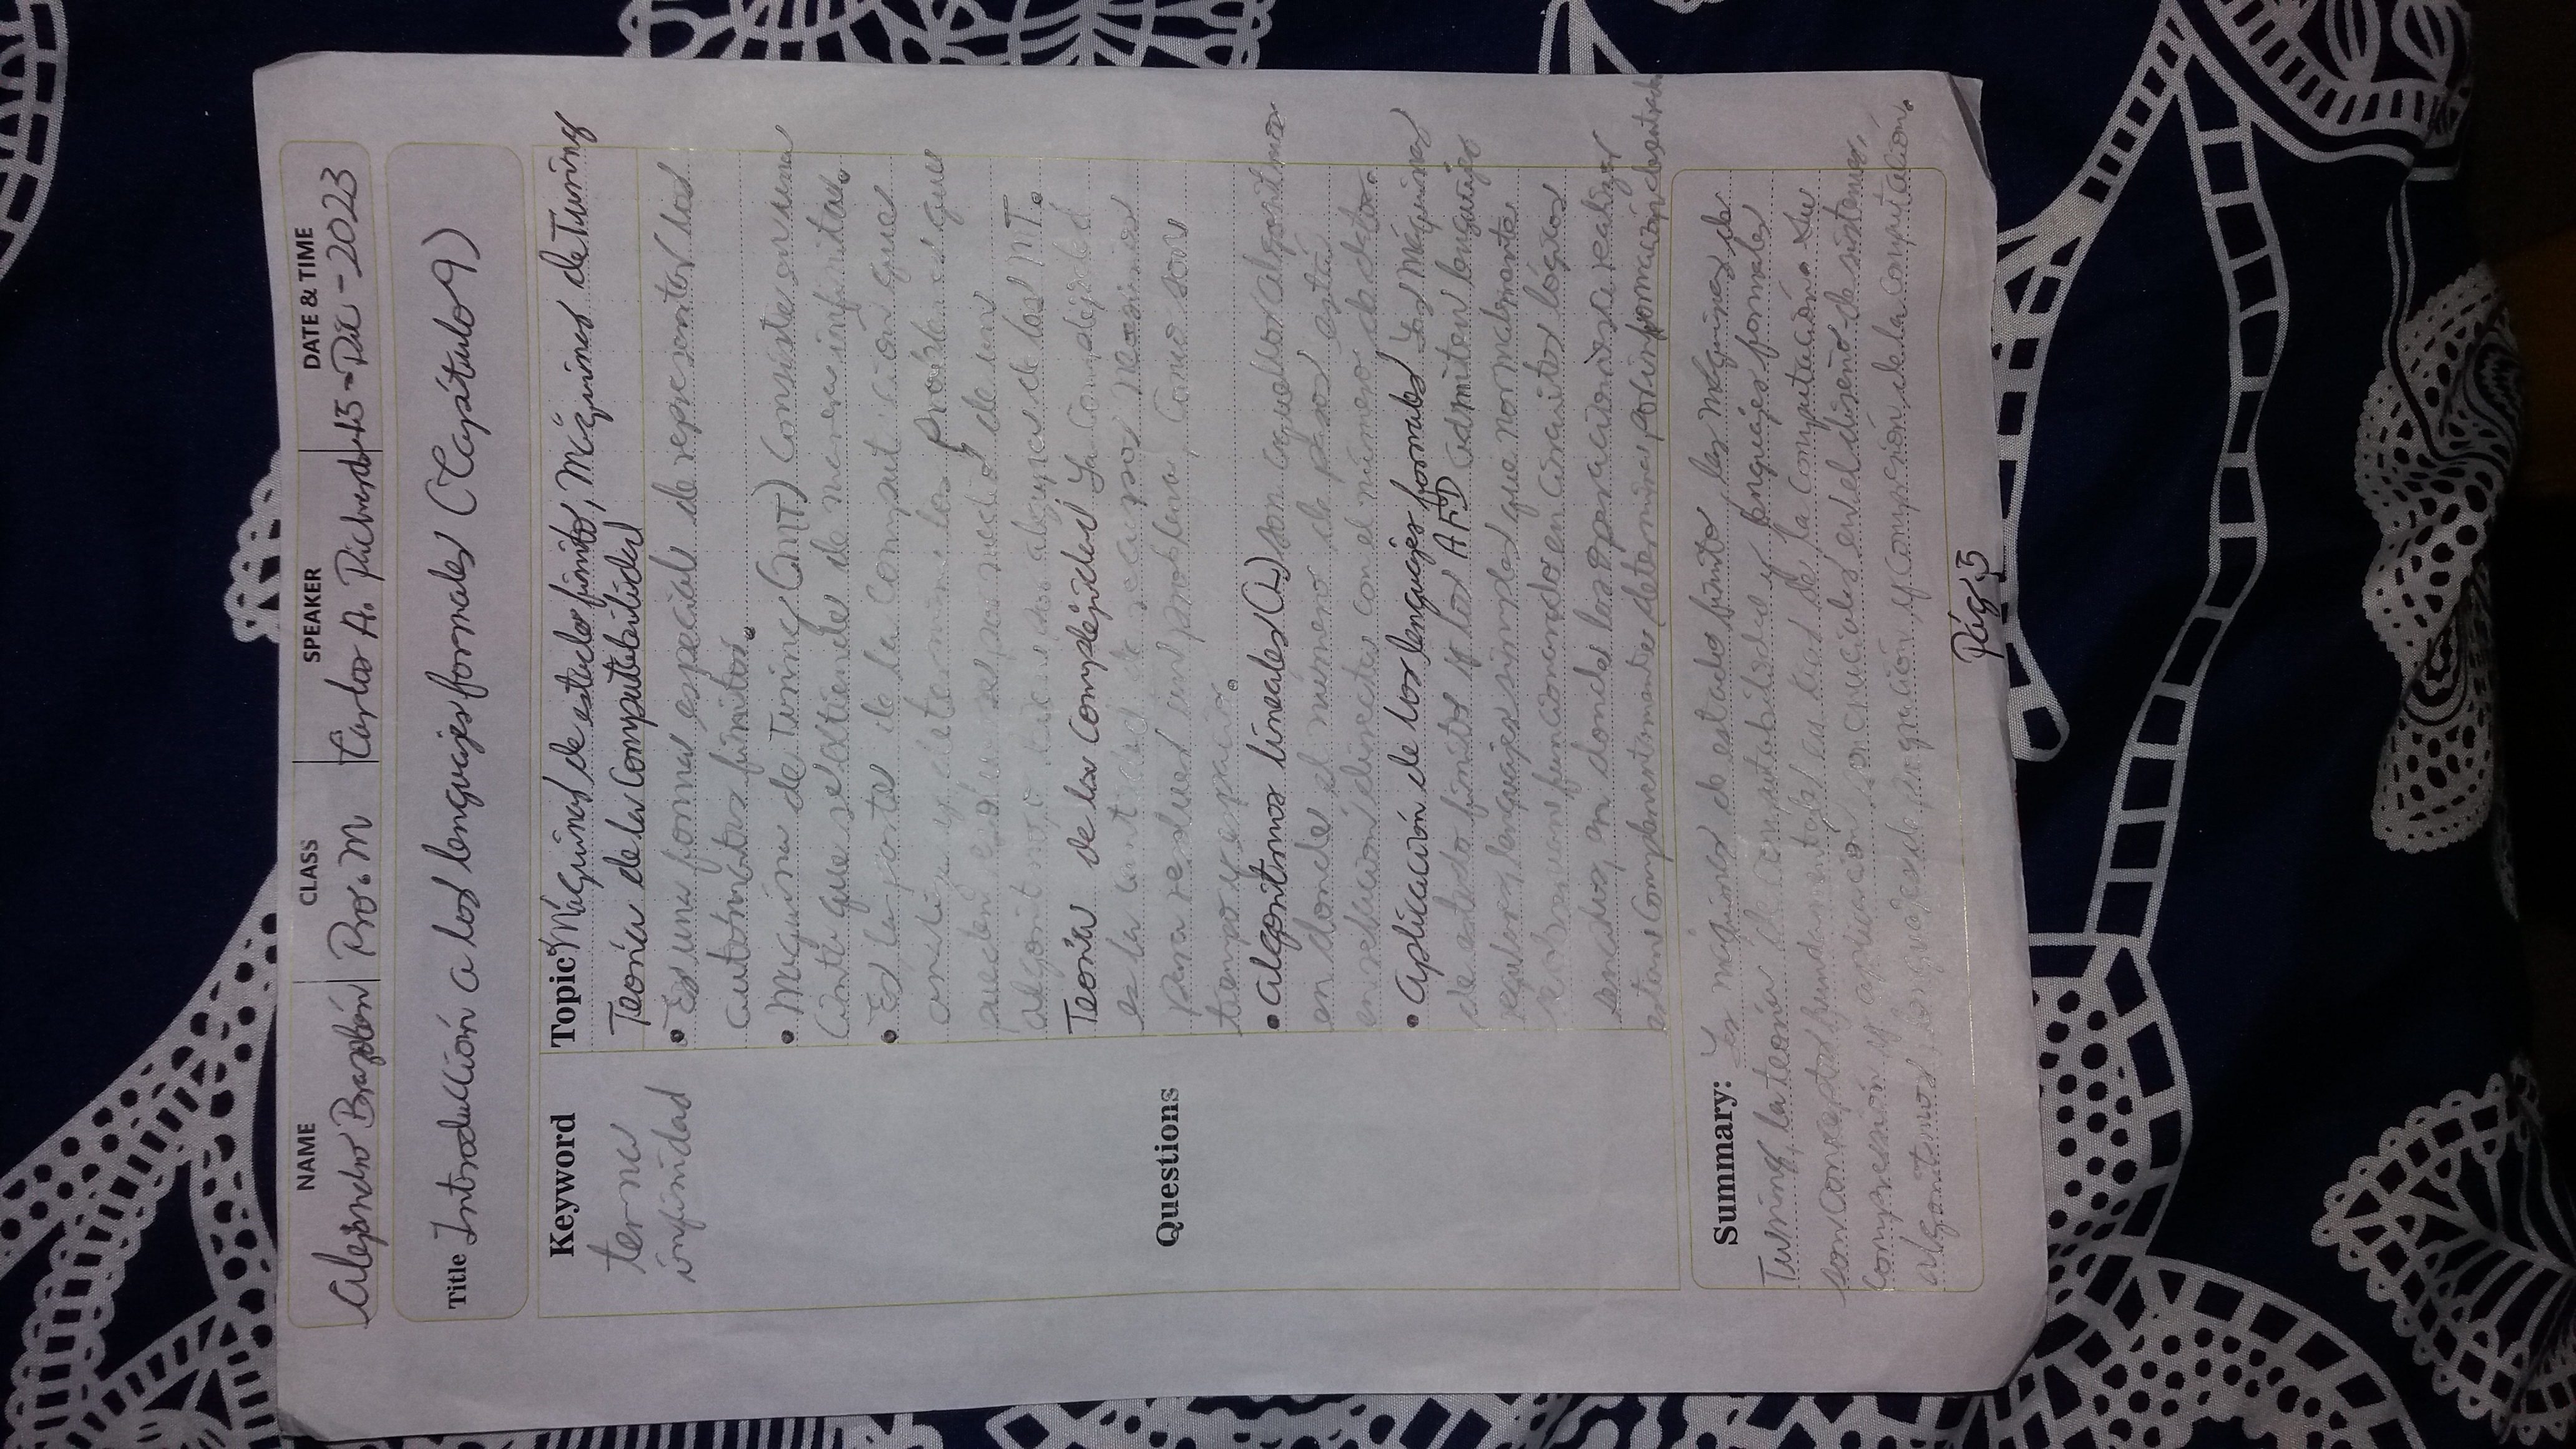 NAME CLASS SPEAKER DATE & TIME
Alejandro Brazobán Pro. M Carlos A. Pichardo 15-Dic-2023
Title Introducción a los lenguajes formales (Capítulo 9)
Keyword
terna
infinidad
Topic Máquinas de estado finito, Máquinas de Turing
Teoría de la Computabilidad
• Es una forma especial de representar los
autómatas finitos.
• Maquina de Turing (MT) Consiste en una
Cinta que se extiende de manera infinita.
• Es la parte de la Computación que
analiza y determina los problemas que
pueden resolverse por medio de un
algoritmo, o por alguna de las MT.
Teoría de la Complejidad La Complejidad
es la cantidad de recursos necesarios
para resolver un problema, como son
tiempo y espacio.
Questions
• Algoritmos lineales (L) son aquellos algoritmos
en donde el número de pasos está
en relación directa con el número de datos.
• Aplicación de los lenguajes formales Las Máquinas
de estado finito y los AFD admiten lenguajes
regulares, lenguajes simples que normalmente
se observan funcionando en circuitos lógicos
sencillos, en donde las operaciones a realizar
estan determina por información de entrada
Summary: Las máquinas de estado finito, las Máquinas de
Turing, la teoría de computabilidad y lenguajes formales
son conceptos fundamentales en de la Computación. Su
compresión y aplicación son cruciales en el diseño de sistemas,
algoritmos, lenguajes de progración y compresión de la Computación.
Pág. 5